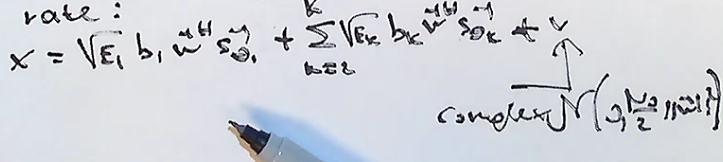 rate:
x = √E₁ b₁ w⃗ᴴ s⃗_θ₁ + Σ_{k=2}^{K} √E_k b_k w⃗ᴴ s⃗_θ_k + v
complex N(0, N₀/2 ||w⃗||²)